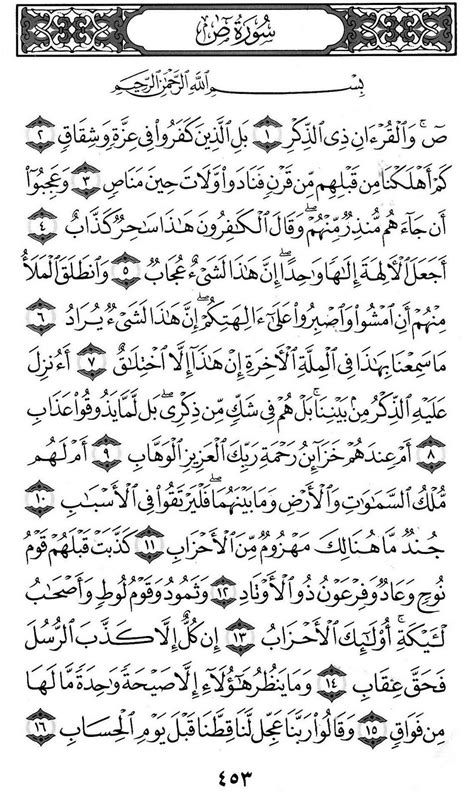 سُورَةُ صٓ
بِسْمِ اللَّهِ الرَّحْمَٰنِ الرَّحِيمِ
صٓ ۚ وَٱلْقُرْءَانِ ذِى ٱلذِّكْرِ ١ بَلِ ٱلَّذِينَ كَفَرُوا۟ فِى عِزَّةٍ وَشِقَاقٍ ٢
كَمْ أَهْلَكْنَا مِن قَبْلِهِم مِّن قَرْنٍ فَنَادَوا۟ وَّلَاتَ حِينَ مَنَاصٍ ٣ وَعَجِبُوٓا۟
أَن جَآءَهُم مُّنذِرٌ مِّنْهُمْ ۖ وَقَالَ ٱلْكَٰفِرُونَ هَٰذَا سَٰحِرٌ كَذَّابٌ ٤
أَجَعَلَ ٱلْءَالِهَةَ إِلَٰهًا وَٰحِدًا ۖ إِنَّ هَٰذَا لَشَىْءٌ عُجَابٌ ٥ وَٱنطَلَقَ ٱلْمَلَأُ
مِنْهُمْ أَنِ ٱمْشُوا۟ وَٱصْبِرُوا۟ عَلَىٰٓ ءَالِهَتِكُمْ ۖ إِنَّ هَٰذَا لَشَىْءٌ يُرَادُ ٦
مَا سَمِعْنَا بِهَٰذَا فِى ٱلْمِلَّةِ ٱلْءَاخِرَةِ إِنْ هَٰذَآ إِلَّا ٱخْتِلَٰقٌ ٧ أَءُنزِلَ
عَلَيْهِ ٱلذِّكْرُ مِنۢ بَيْنِنَا ۚ بَلْ هُمْ فِى شَكٍّ مِّن ذِكْرِى ۖ بَل لَّمَّا يَذُوقُوا۟ عَذَابِ
٨ أَمْ عِندَهُمْ خَزَآئِنُ رَحْمَةِ رَبِّكَ ٱلْعَزِيزِ ٱلْوَهَّابِ ٩ أَمْ لَهُم
مُّلْكُ ٱلسَّمَٰوَٰتِ وَٱلْأَرْضِ وَمَا بَيْنَهُمَا ۖ فَلْيَرْتَقُوا۟ فِى ٱلْأَسْبَٰبِ ١٠
جُندٌ مَّا هُنَالِكَ مَهْزُومٌ مِّنَ ٱلْأَحْزَابِ ١١ كَذَّبَتْ قَبْلَهُمْ قَوْمُ
نُوحٍ وَعَادٌ وَفِرْعَوْنُ ذُو ٱلْأَوْتَادِ ١٢ وَثَمُودُ وَقَوْمُ لُوطٍ وَأَصْحَٰبُ
لْـَٔيْكَةِ ۚ أُو۟لَٰٓئِكَ ٱلْأَحْزَابُ ١٣ إِن كُلٌّ إِلَّا كَذَّبَ ٱلرُّسُلَ
فَحَقَّ عِقَابِ ١٤ وَمَا يَنظُرُ هَٰٓؤُلَآءِ إِلَّا صَيْحَةً وَٰحِدَةً مَّا لَهَا
مِن فَوَاقٍ ١٥ وَقَالُوا۟ رَبَّنَا عَجِّل لَّنَا قِطَّنَا قَبْلَ يَوْمِ ٱلْحِسَابِ ١٦
٤٥٣